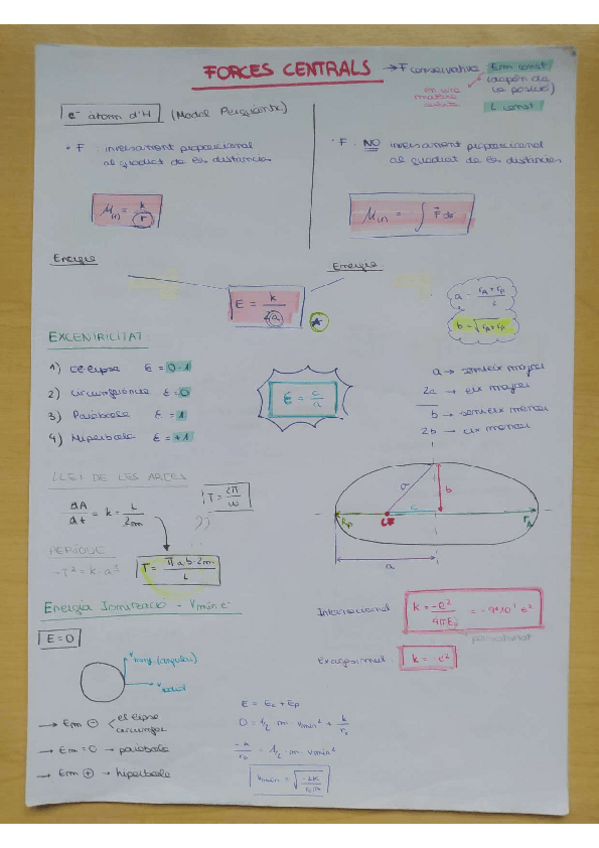 FORCES CENTRALS → F conservativa
Em const
en una mateixa
(depèn de la posició)
L const
e⁻ àtom d'H (Model Perquante)
• F : inversament proporcional
al quadrat de les distàncies
U(r) = k/r
• F : NO inversament proporcional
al quadrat de les distàncies
U(r) = ∫ F dr
Energia
Energia
E = k/2a
b = √rA·rP
EXCENTRICITAT
1) el·lipse ε = 0-1
2) circumferència ε = 0
3) Paràbola ε = 1
4) Hipèrbola ε = +1
ε = c/a
a → semieix major
2a → eix major
b → semieix menor
2b → eix menor
LLEI DE LES ÀREES
dA/dt = k = L/2m
T = 2π/ω
PERÍODE
T² = k·a³
T = πab·2m/L
a
b
c
rP
rA
a
Energia Ionització - Vmín e⁻
E = 0
V tang (angular)
V radial
→ Em ⊖ < el·lipse
circumfer
→ Em = 0 → paràbola
→ Em ⊕ → hipèrbola
E = Ec + Ep
0 = 1/2 · m · vmín² + k/r₀
-k/r₀ = 1/2 · m · vmín²
vmín = √-2k/r₀m
Internacional
k = -e²/4πε₀ = -9·10⁹ e²
Cegesimal
k = -e²